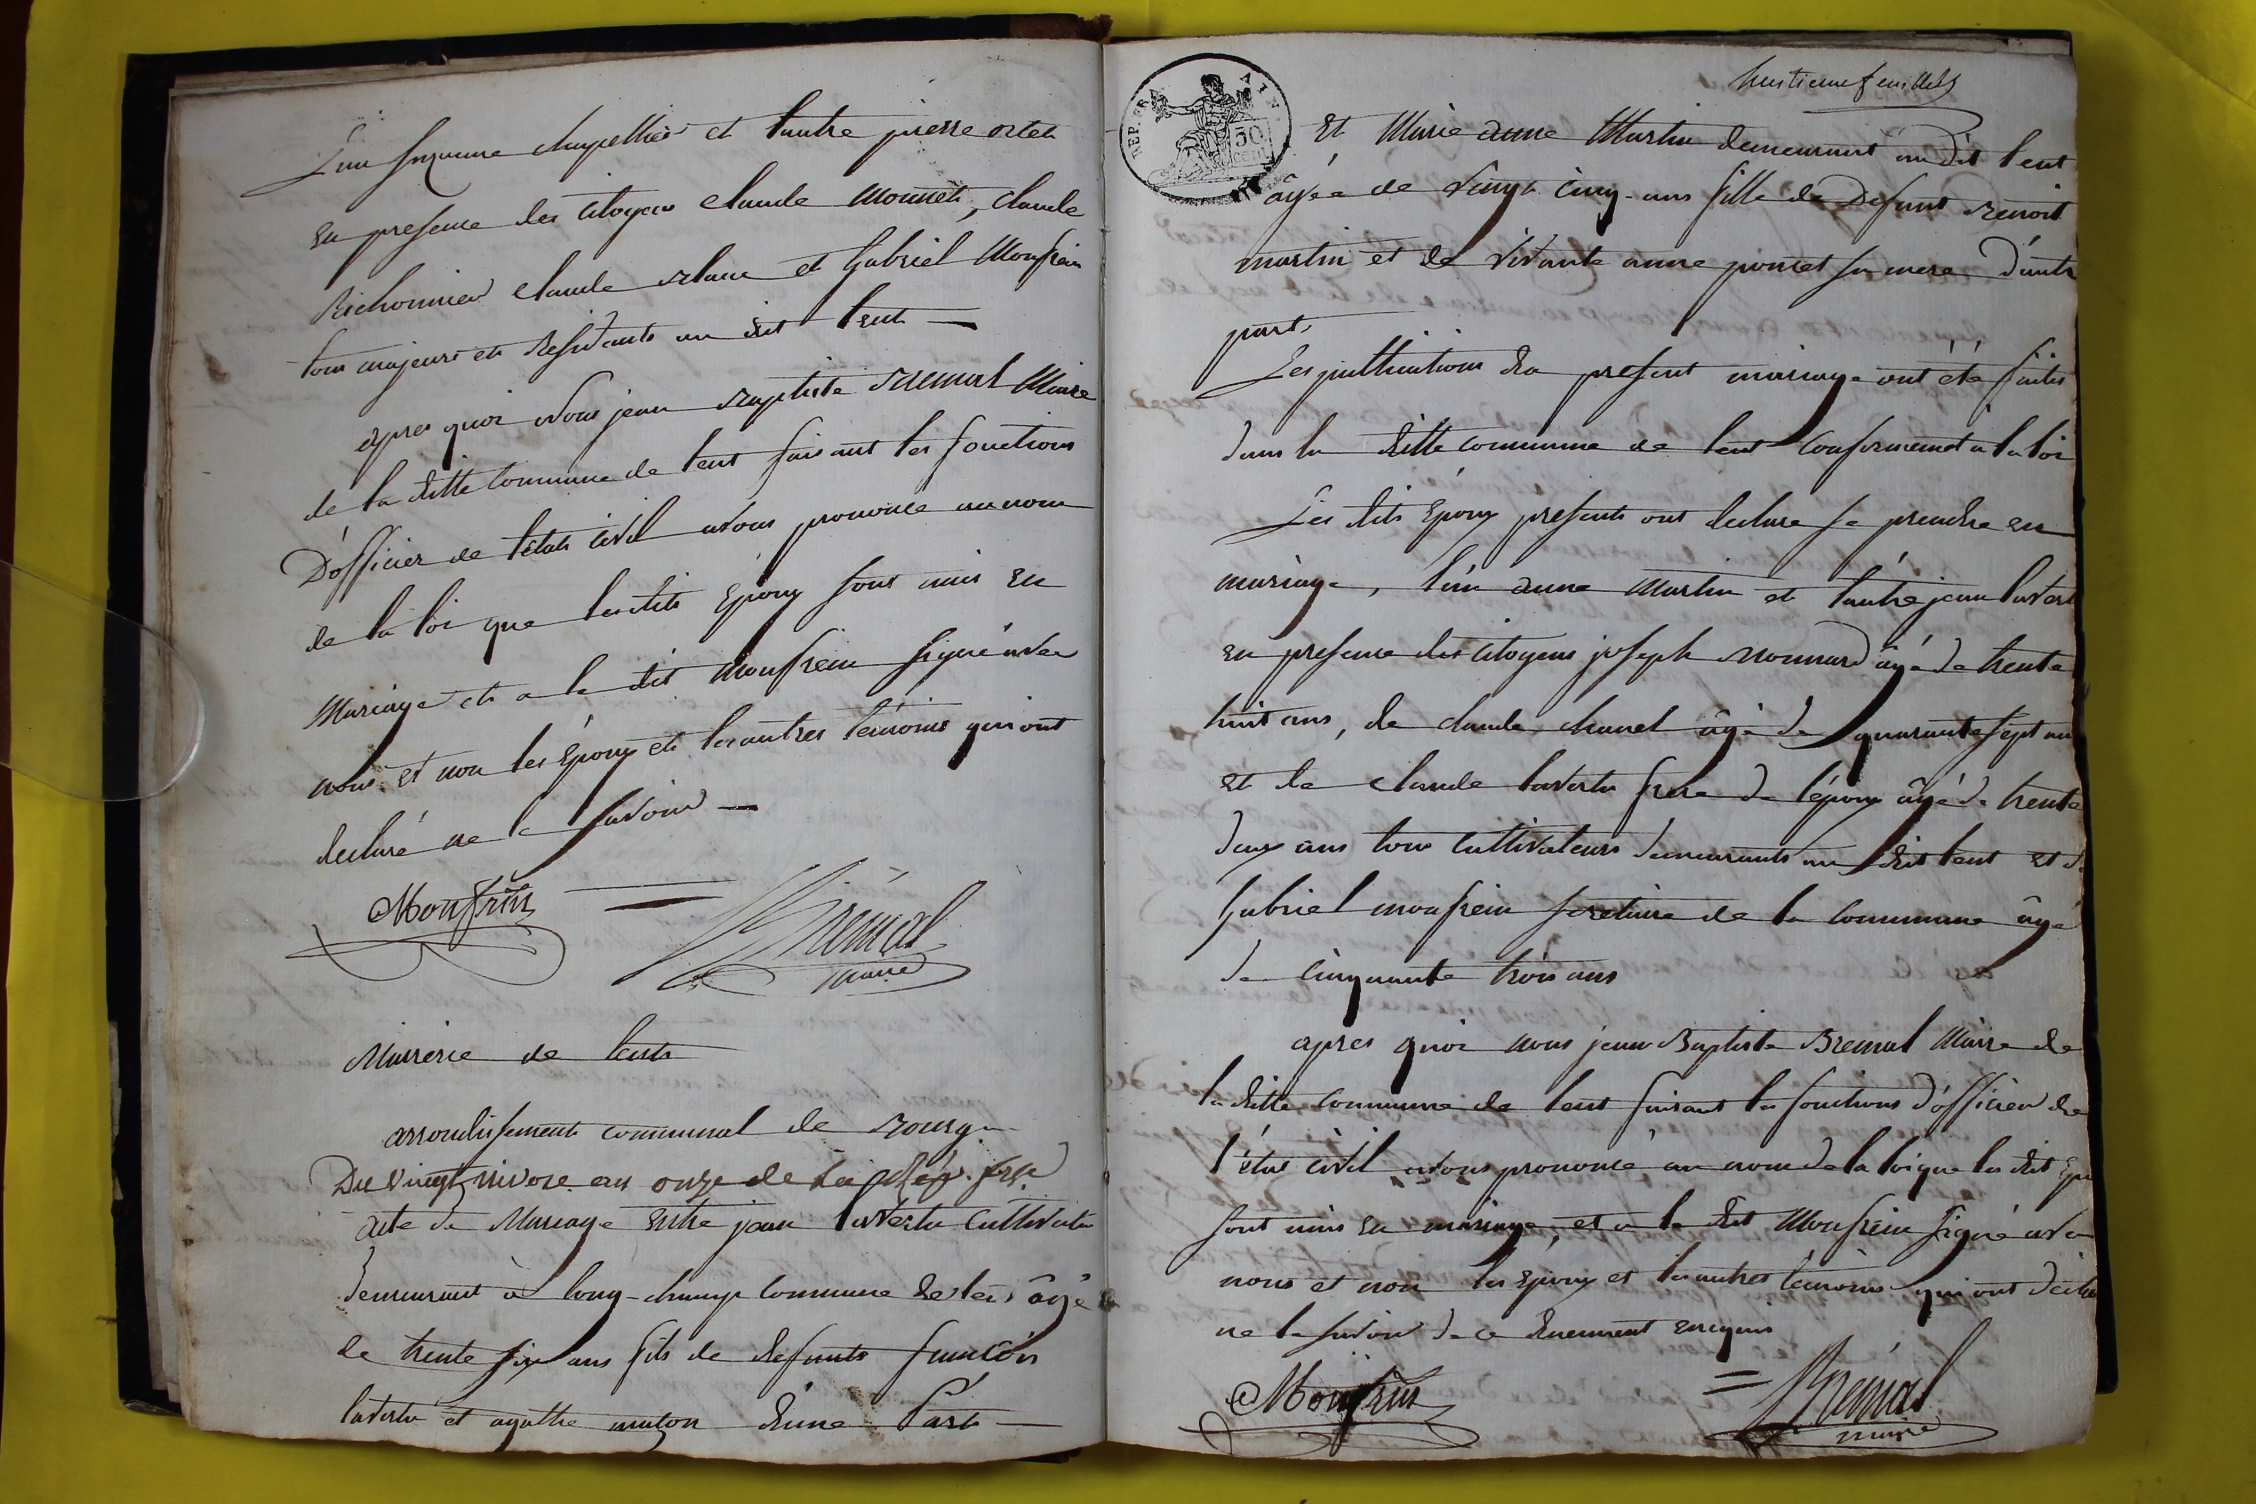 L'un suzanne chapellier et l'autre pierre ortet
en presence des citoyens claude Monnet, claude
Richonnier claude Blanc et Gabriel Monfrein
tous majeurs et Residants au dit lent —
apres quoi Nous jean Baptiste Bremal Maire
de la ditte Commune de lent faisant les fonctions
D'officier de l'état civil avons prononcé au nom
de la loi que lesdits Epoux sont unis en
Mariage et a le dit Monfrein signé avec
nous et non les Epoux et les autres témoins qui ont
declaré ne le savoir —
Monfrein
Bremal
maire
Mairerie de lent
arrondissement communal de Bourg
Du vingt nivose an onze de la Rép. frse
acte de Mariage entre jean lavertu cultivateur
demeurant à long-champ commune de lent âgé
de trente six ans fils de defunts francois
lavertu et agathe muton d'une Part —
huitieme feuillet
REP. FRA
50
cent
et Marie anne Martin demeurant au dit lent
âgée de vingt cinq ans fille de Defunt Benoit
martin et de vivante anne poncet sa mere D'autre
part,
Les publications du present mariage ont été faites
dans la ditte commune de lent conformement à la loi
Les dits Epoux presents ont declare se prendre en
mariage, l'un anne Martin et l'autre jean lavertu
en presence des citoyens joseph Monnard âgé de trente
huit ans, de claude chanel âgé de quarante sept ans
et de claude lavertu frere de l'époux âgé de trente
deux ans tous cultivateurs demeurants au dit lent et de
Gabriel monfrein secretaire de la commune âgé
de cinquante trois ans
apres quoi nous jean Baptiste Bremal Maire de
la ditte commune de lent faisant les fonctions d'officier de
l'état civil avons prononcé au nom de la loi que les dit Epoux
sont unis en mariage, et a le dit Monfrein signé avec
nous et non les Epoux et les autres témoins qui ont déclaré
ne le savoir de ce duement enquis
Monfrein
Bremal
maire